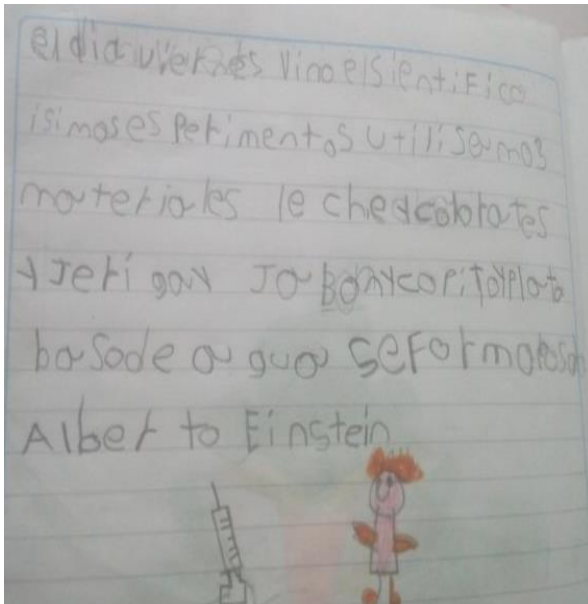 el dia viernes vino el sientifico
isimos esperimentos utilisamos
materiales leche y colorates
y Jeri gay Jabon y copito y plato
basode agua se formo
Alberto Einstein